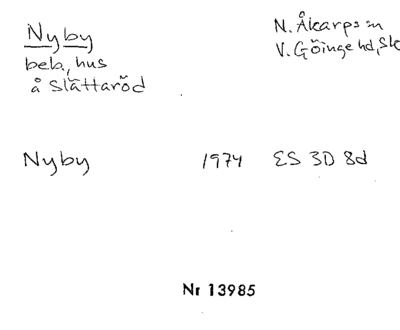 Nyby
beb., hus
å Slättaröd
N. Åkarps sn
V. Göinge hd, Sk
Nyby 1974 ES 3D 8d
Nr 13985